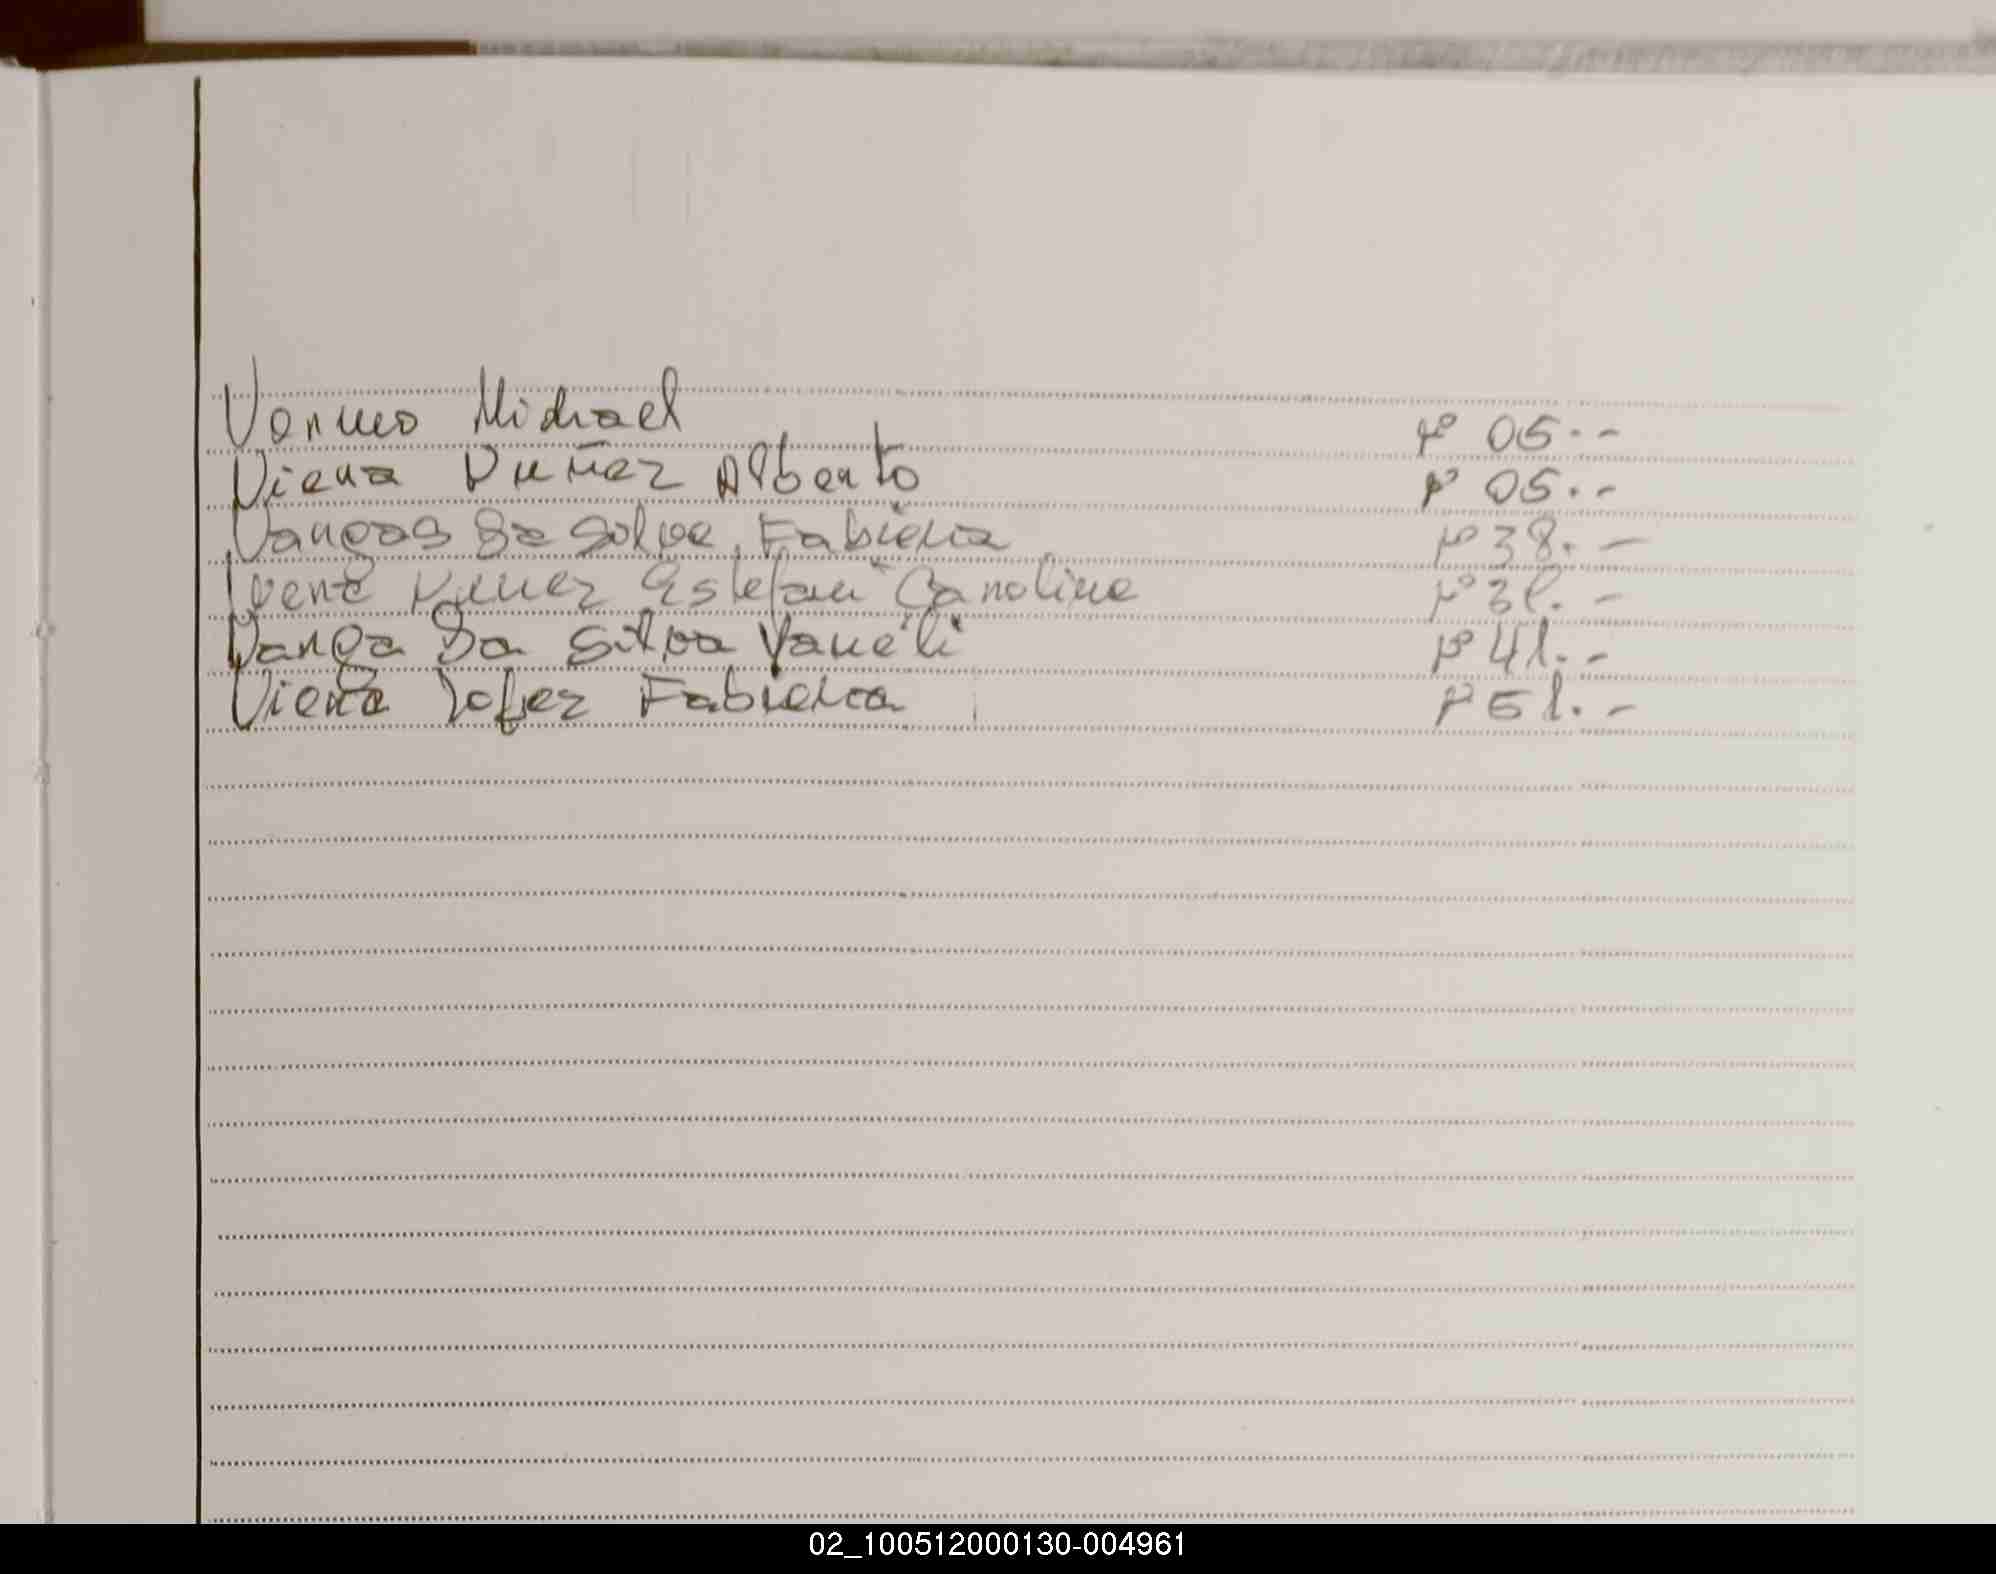 Vormeo Michael Nº 05.-
Viena Nuñez Alberto Nº 05.-
Vargas Da Silva, Fabiana Nº 38.-
Viena Nuñez Estefani Carolina Nº 31.-
Varga Da Silva Yaneli Nº 41.-
Viena Lopez Fabiana Nº 51.-
02_100512000130-004961